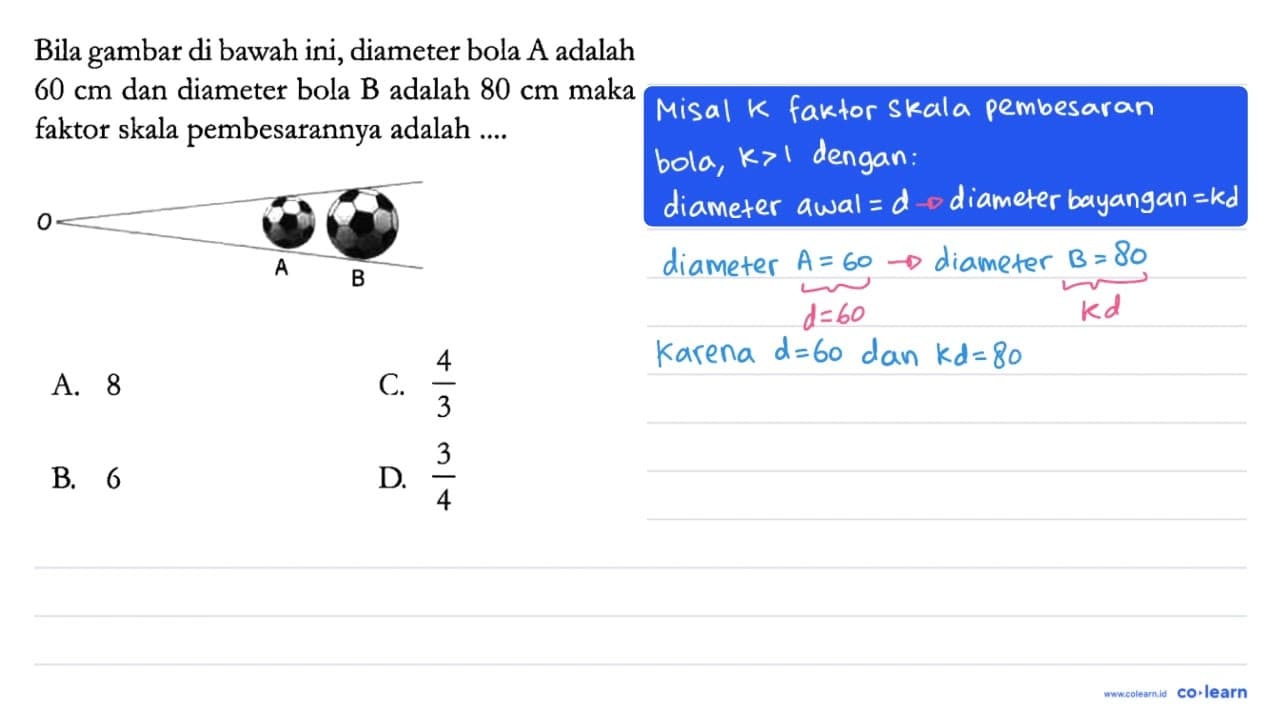 Bila gambar di bawah ini, diameter bola A adalah
60 cm dan diameter bola B adalah 80 cm maka
faktor skala pembesarannya adalah ....
O
A
B
A. 8
C. 4/3
B. 6
D. 3/4
Misal K faktor skala pembesaran
bola, K>1 dengan:
diameter awal = d → diameter bayangan = kd
diameter A = 60 → diameter B = 80
d=60
kd
Karena d=60 dan kd=80
www.colearn.id co·learn